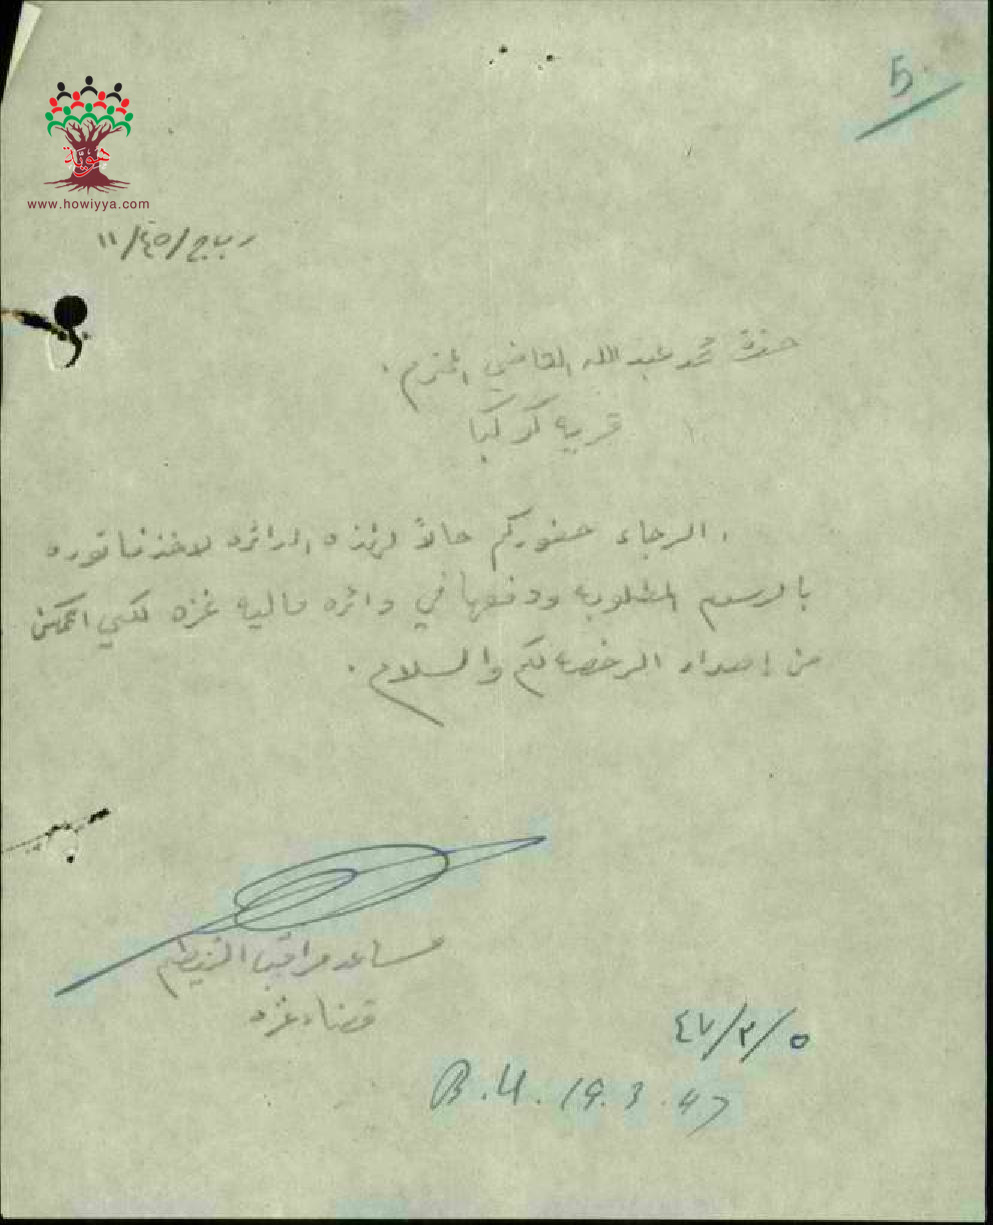 5
هوية
www.howiyya.com
ر ب ج/٤٥/١١
حضرة محمد عبد الله القاضي المحترم.
قرية كوكبا
الرجاء حضوركم حالاً لهذه الدائره لاخذ فاتوره
بالرسوم المطلوبه ودفعها في دائره ماليه غزه لكي اتمكن
من اصدار الرخصه لكم والسلام.
مساعد مراقب التنظيم
قضاء غزه
٥/٣/٤٧
B.U. 19.3.47